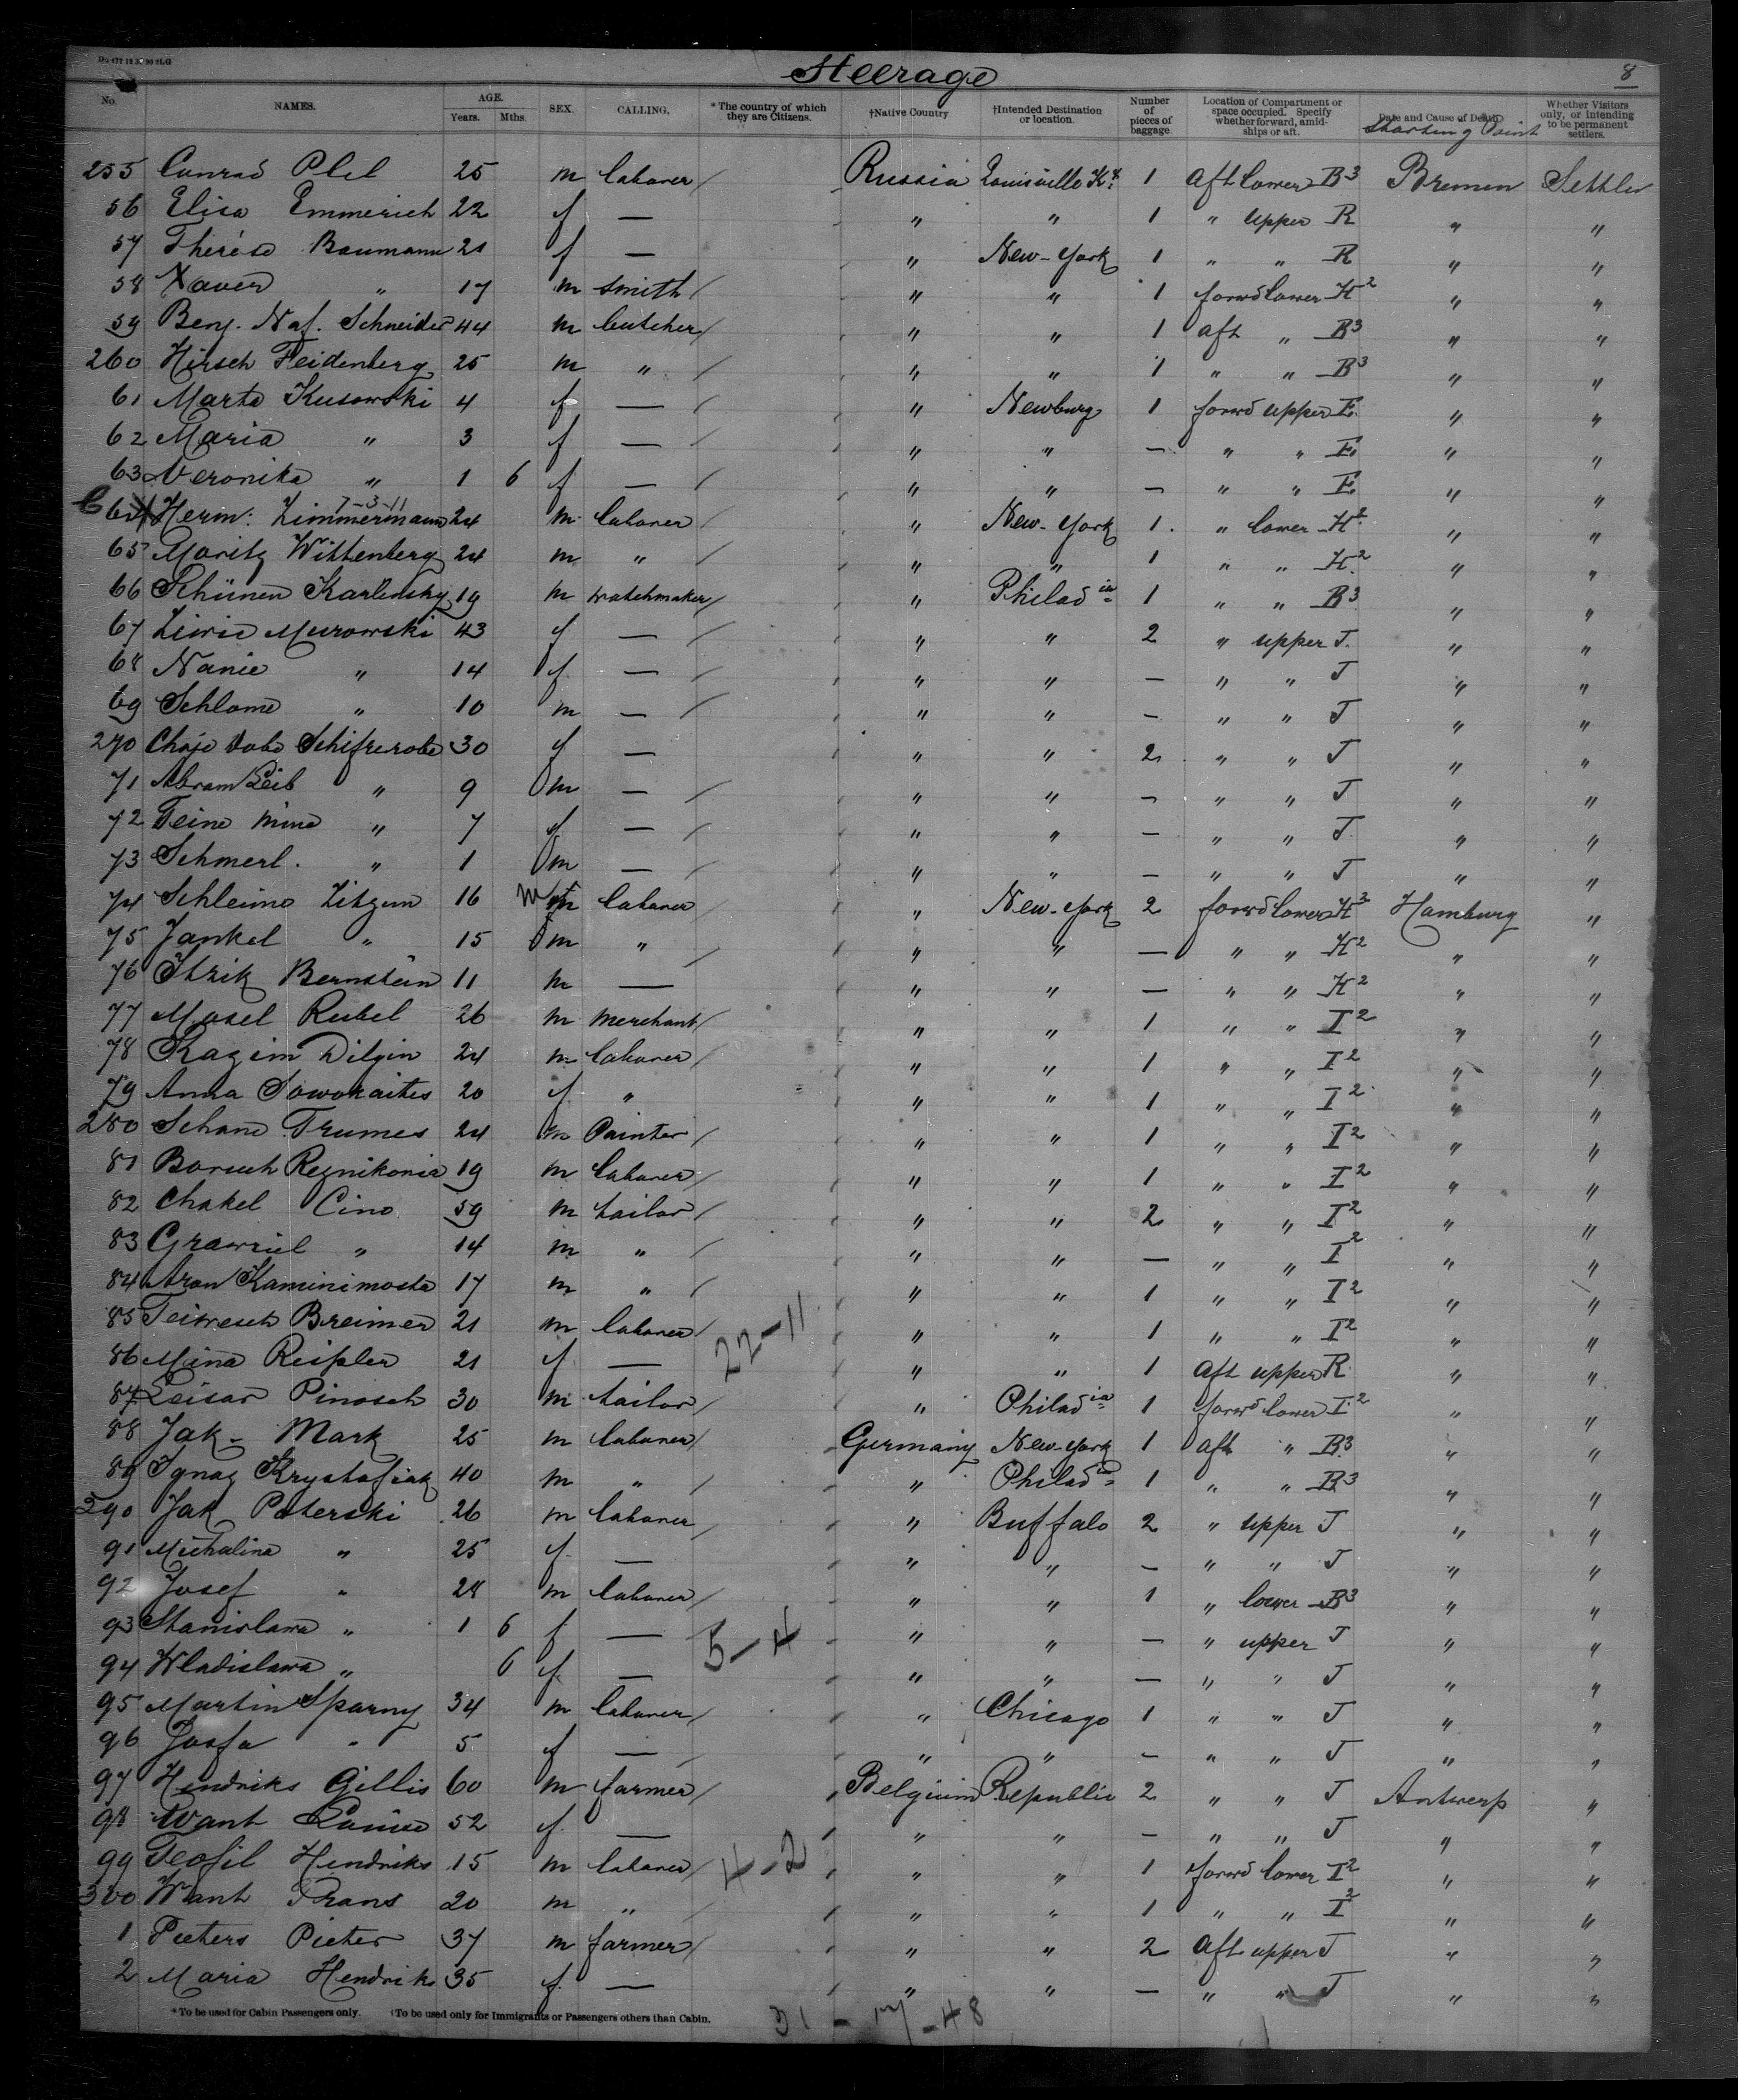 Steerage
8
No. NAMES. AGE. Years. Mths. SEX. CALLING. *The country of which they are Citizens. †Native Country †Intended Destination or location. Number of pieces of baggage. Location of Compartment or space occupied. Specify whether forward, amidships or aft. Date and Cause of Death Starting Point Whether Visitors only, or intending to be permanent settlers.
255 Conrad Plel 25 m laborer / Russia Louisville Ky. 1 aft lower B3 Bremen Settler
56 Elisa Emmerich 22 f — " " 1 " upper R " "
57 Therése Baumann 21 f — " New-York 1 " " R " "
58 Xaver " 17 m smith / " " 1 forwd lower H2 " "
59 Benj. Naf. Schneider 44 m butcher / " " 1 aft " B3 " "
260 Hirsch Feidenberg 25 m " / " " 1 " " B3 " "
61 Marta Kusowski 4 f — / " Newburg 1 forwd upper E. " "
62 Maria " 3 f — / " " — " " E. " "
63 Veronika " 1 6 f — / " " — " " E " "
7-3-11
64 Herm: Zimmermann 24 m laborer / " New-York 1. " lower H2 " "
65 Moritz Wittenberg 24 m " / " " 1 " " H2. " "
66 Karlensky 19 m watchmaker / " Philadia 1 " " B3 " "
67 Murowski 43 f — / " " 2 " upper J. " "
68 Nanie " 14 f. — / " " — " " J " "
69 Schlome " 10 m — / " " — " " J " "
270 Chaje Dobe 30 f — " " 2 " " J " "
71 Abram Leib " 9 m — / " " — " " J " "
72 Feine Mine " 7 f — / " " — " " J " "
73 Schmerl. " 1 m — / " " — " " J " "
74 Schleimo Zitzum 16 m laborer / " New-York 2 forwd lower H2 Hamburg "
75 Jankel " 15 m " / " " — " " H2 " "
76 Itzik Bernstein 11 m — " " — " " H2 " "
77 Mosel Rubel 26 m merchant / " " 1 " " I2 " "
78 Kazim Dilgin 24 m laborer / " " 1 " " I2 " "
79 Anna Sowokaites 20 f " " " 1 " " I2 " "
280 Schane Trumes 24 m Painter / " " 1 " " I2 " "
81 Boruch 19 m laborer / " " 1 " " I2 " "
82 Chakel Cino 59 m tailor / " " 2 " " I2 " "
83 " 14 m " / " " — " " I2 " "
84 Aron 17 m " / " " 1 " " I2 " "
85 Breimer 21 m laborer / 22-11 " " 1 " " I2 " "
86 Mina Reipler 21 f — " " 1 aft upper R " "
87 Leisar Pinosch 30 m tailor / " Philadia 1 forwd lower I2 " "
88 Jak- Mark 25 m laborer / Germany New-York 1 aft " B3 " "
89 Ignaz Krystofiak 40 m " / " Philadia 1 " " B3 " "
290 Jak Paterski 26 m laborer / " Buffalo 2 " upper J " "
91 Michalina " 25 f. — " " — " " J " "
92 Josef " 28 m laborer / " " 1 " lower B3 " "
93 Stanislawa " 1 6 f — 5-4 " " — " upper J " "
94 Wladislawa " 6 f. — " " — " " J " "
95 Martin Sparny 34 m laborer / " Chicago 1 " " J " "
96 Josfa " 5 f — / " " — " " J " "
97 Hendriks Gillis 60 m farmer / Belgium Republic 2 " " J Antwerp "
98 Want Louise 52 f. — " " — " " J " "
99 Teofil Hendriks 15 m laborer / 4-2 " " 1 forwd lower I2 " "
300 Want Frans 20 m " / " " 1 " " I2 " "
1 Pieters Pieter 37 m farmer / " " 2 aft upper J " "
2 Maria Hendriks 35 f. — " " — " " J " "
*To be used for Cabin Passengers only. †To be used only for Immigrants or Passengers others than Cabin.
31-17-48